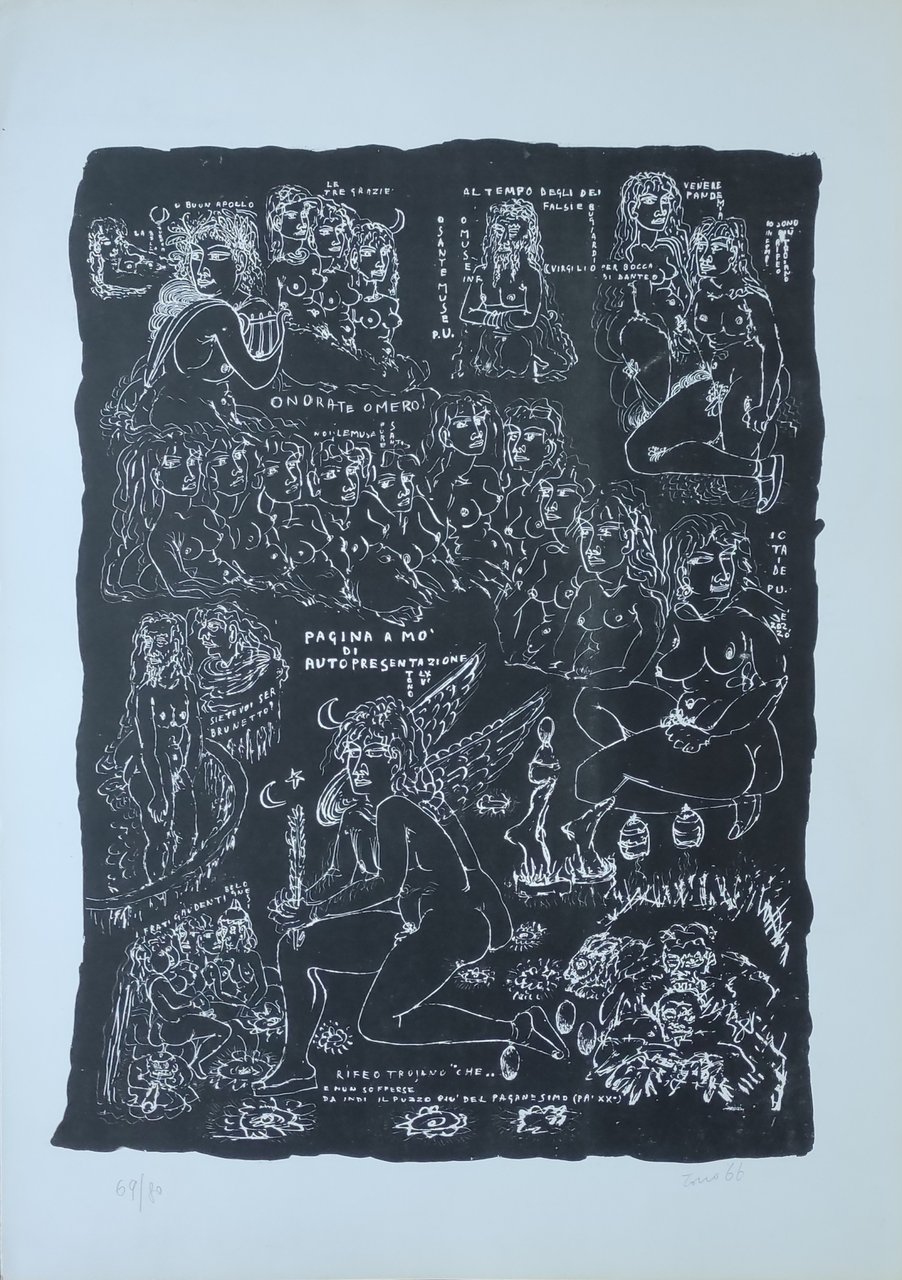 O BUON APOLLO
LE
TRE GRAZIE
AL TEMPO DEGLI DEI
FALSI E BUGIARDI
(VIRGILIO PER BOCCA
DI DANTE)
O SANTE MUSE
P.U.
O MUSE
INF
VENERE
PANDEMIA
IO SONO
ONORATE OMERO!
NOI LE MUSE
PURE
TAIDE
P.U.
PAGINA A MO'
DI
AUTOPRESENTAZIONE
TONO
SIETE VOI SER
BRUNETTO?
FRATI GAUDENTI
RIFEO TROIANO "CHE..
E NON SOFFERSE
DA INDI IL PUZZO PIU' DEL PAGANESIMO (PA. XX°)
69/80
66